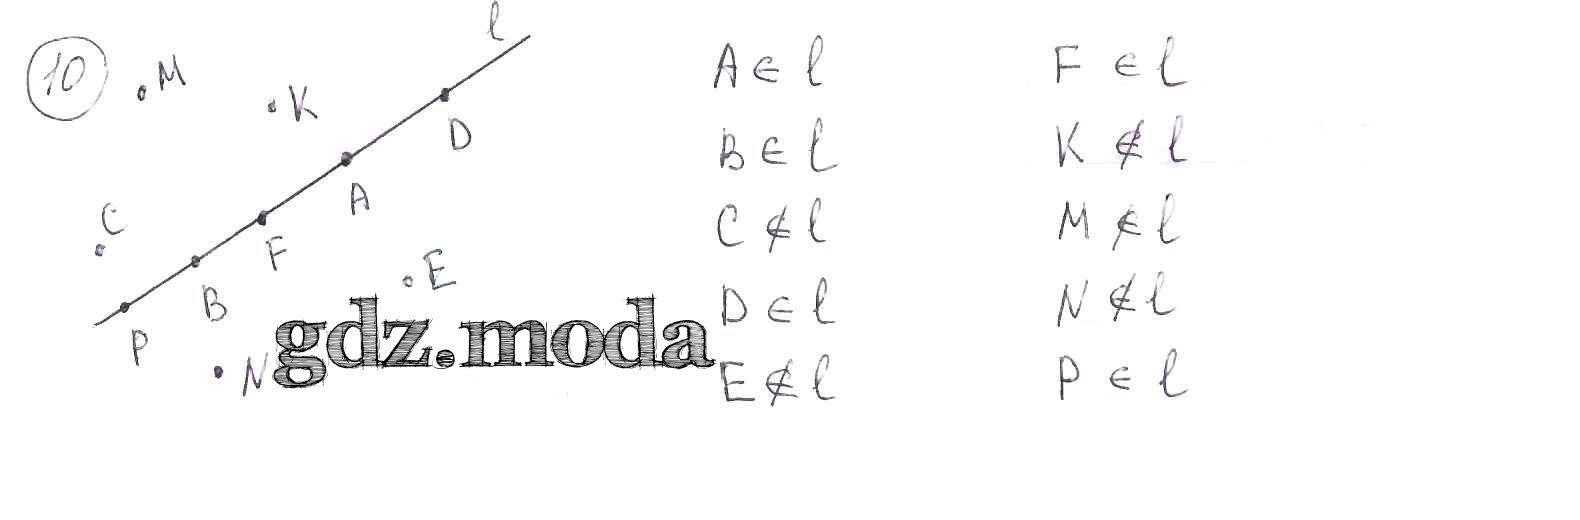 10
l
M
K
D
A
C
F
E
B
P
N
gdz.moda
A ∈ l
B ∈ l
C ∉ l
D ∈ l
E ∉ l
F ∈ l
K ∉ l
M ∉ l
N ∉ l
P ∈ l